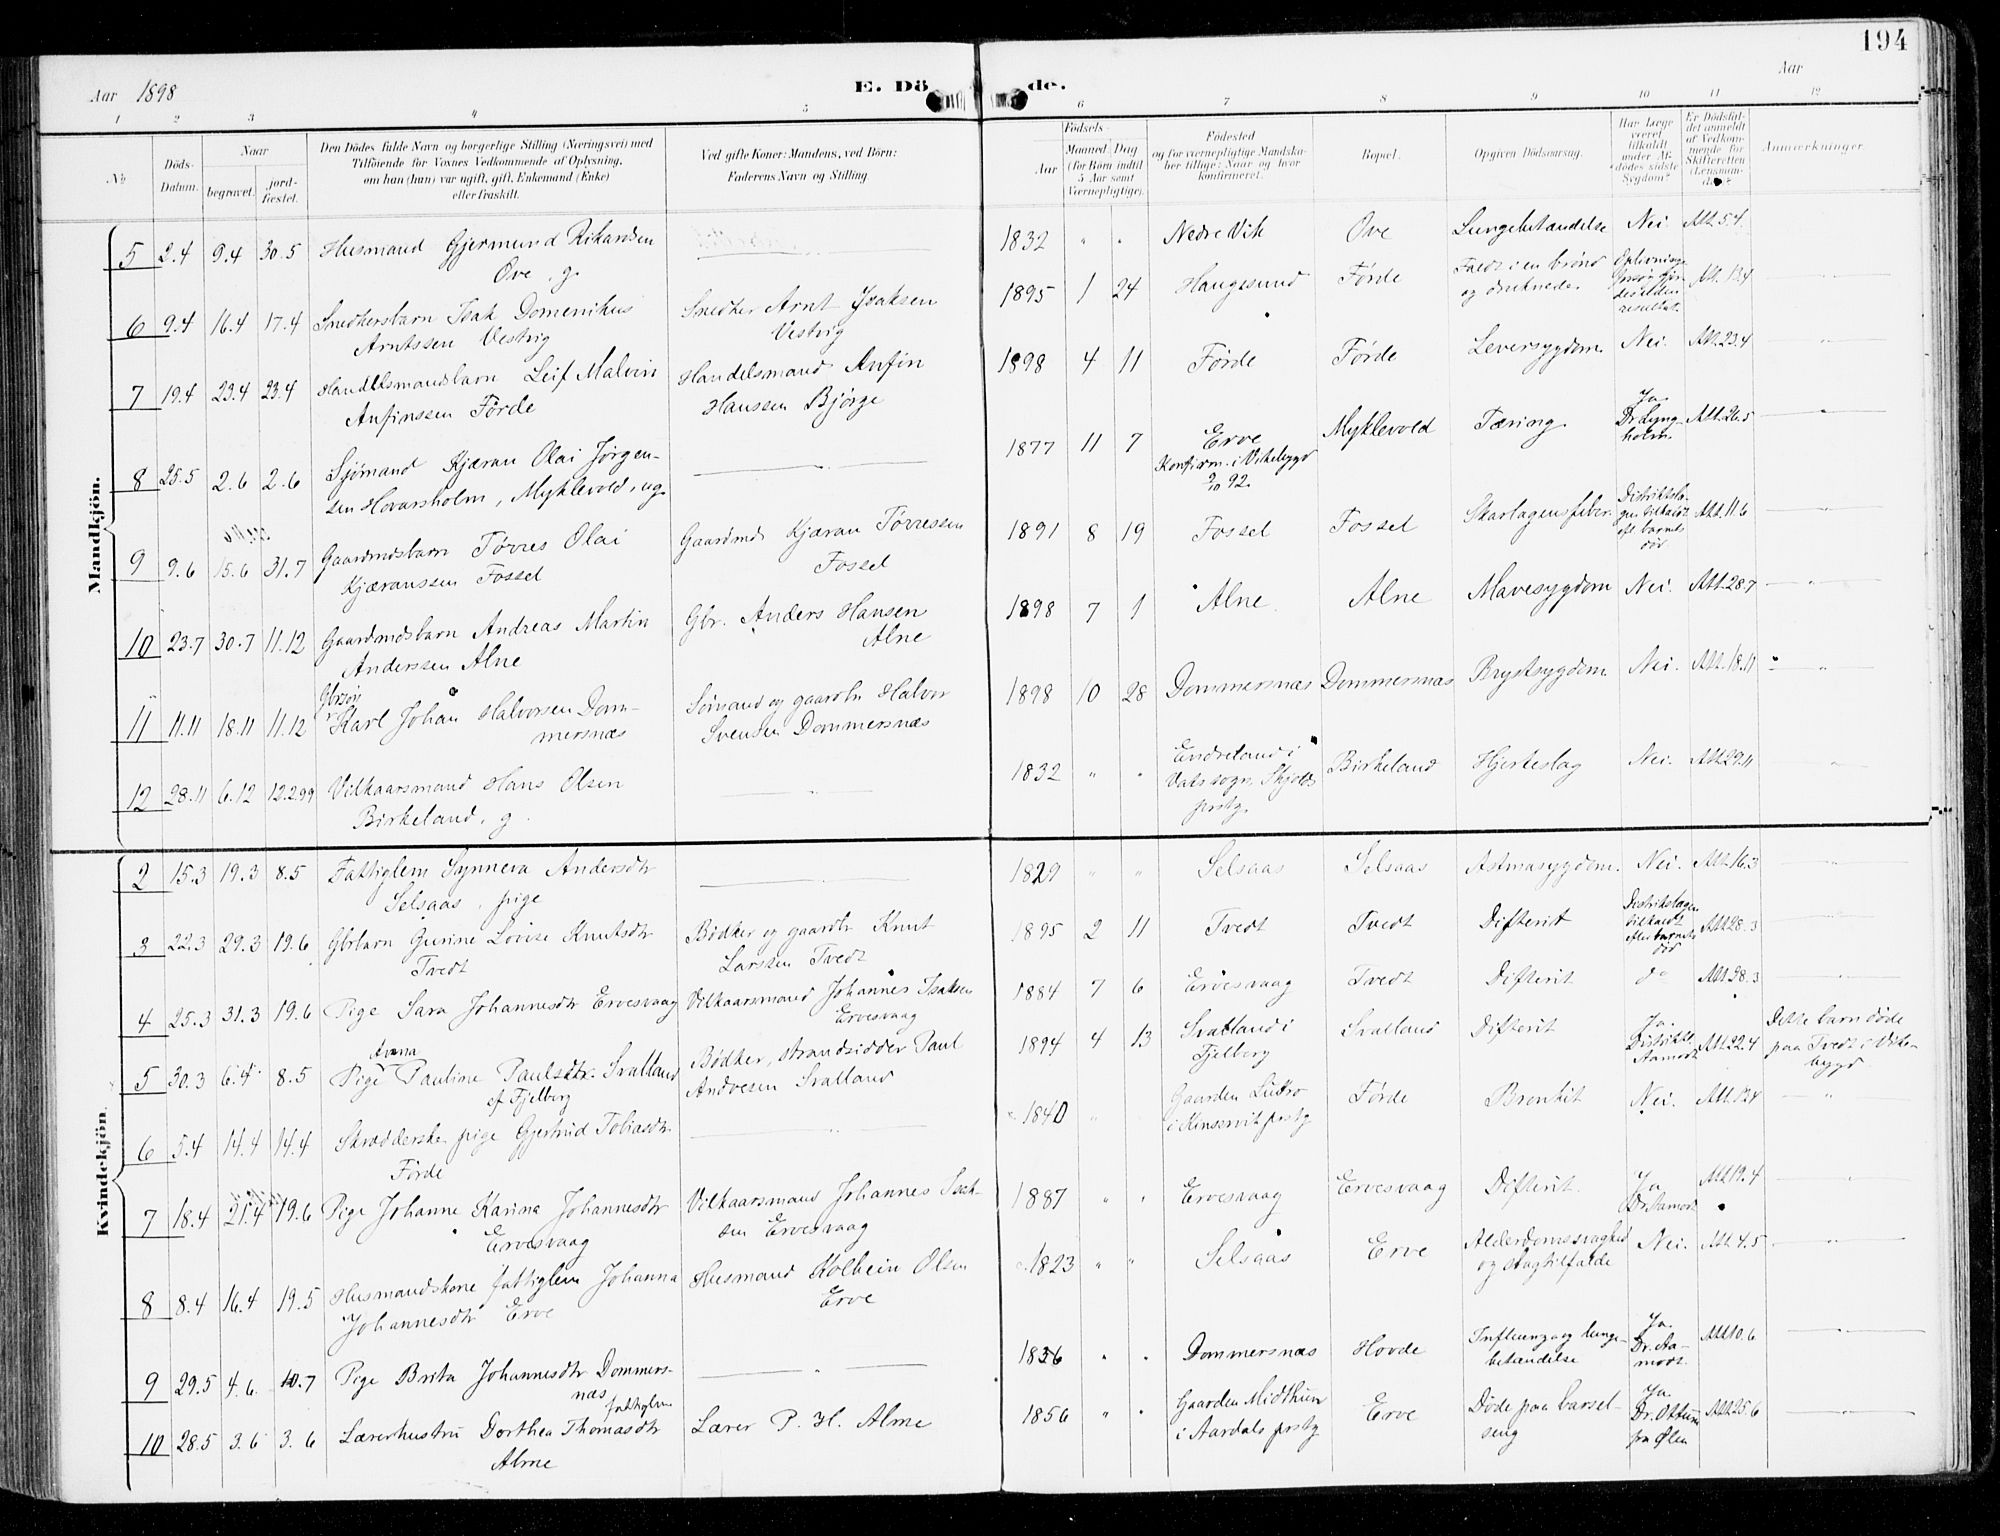 194
Aar 1898
E. Dö de.
Aar
1 2 3 4 5 6 7 8 9 10 11 12
№
Döds-Datum.
Naar
begravet.
jord-fæstet.
Den Dödes fulde Navn og borgerlige Stilling (Næringsvei) med
Tilföiende for Voxnes Vedkommende af Oplysning,
om han (hun) var ugift, gift, Enkemand (Enke)
eller fraskilt.
Ved gifte Koner: Mandens, ved Börn:
Faderens Navn og Stilling.
Födsels-
Aar
Maaned Dag
(for Börn indtil
5 Aar samt
Værnepligtige).
Födested
og for værnepligtige Mandska-
ber tillige: Naar og hvor
konfirmeret.
Bopæl.
Opgiven Dödsaarsag.
Har Læge
været
tilkaldt
under Af-
dödes sidste
Sygdom?
Er Dödsfal-
det anmeldt
af Vedkom-
mende for
Skifteretten
(Lensman-
den)?
Anmærkninger.
Mandkjön.
5 2.4 9.4 30.5 Husmand Gjermund Rikardsen
Ove, g.
1832 " " Nedre Vik Ove Lungebetændelse Nei. Att. 5.4.
6 9.4 16.4 17.4 Snedkersbarn Isak Domenikus
Arntssen Vestvig
Snedker Arnt Isaksen
Vestvig
1895 1 24 Haugesund Förde Faldt i en brönd
og druknede.
Oplivnings
resultat.
Att. 13.4
7 19.4 23.4 23.4 Handelsmandsbarn Leif Malvin
Anfinssen Förde
Handelsmand Anfin
Hanssen Bjørge
1898 4 11 Förde Förde Leversygdom Nei. Att. 23.4
8 25.5 2.6 2.6 Sjömand Kjæran Olai Jörgen-
sen Hovarsholm, Myklevold, ug.
1877 11 7 Erve
Konfirm. i Vikebygd
2/10 92.
Myklevold Tæring.
Ja.
Dr. Lyng-
holm.
Att. 26.5
9 9.6 15.6 31.7 Gaardmdsbarn Törres Olai
Kjæranssen Fossel
Gaardmd Kjæran Törressen
Fossel
1891 8 19 Fossel Fossel Skarlagensfeber.
Distriktslæ-
gen tilkaldt
eft. barnets
död.
Att. 11.6
10 23.7 30.7 11.12 Gaardmdsbarn Andreas Martin
Anderssen Alne
Gbr. Anders Hansen
Alne
1898 7 1 Alne. Alne Mavesygdom Nei. Att. 28.7
11 11.11 18.11 11.12 Gbrsön
Karl Johan Halvorsen Dom-
mersnæs
Sömand og gaardbr Halvor
Svensen Dommersnæs
1898 10 28 Dommersnæs Dommersnæs Brystsygdom Nei. Att. 18.11
12 28.11 6.12 12.2.99 Vilkaarsmand Hans Olsen
Birkeland, g.
1832 " " Endreland i
Vats sogn, Skjolds
prstg.
Birkeland Hjerteslag Nei. Att. 29.11
Kvindekjön.
2 15.3 19.3 8.5 Fattiglem Synneva Andersdtr
Selsaas, pige
1829 " " Selsaas Selsaas Astmasygdom. Nei. Att. 16.3
3 22.3 29.3 19.6 Gbrbarn Gurine Lovise Knutsdtr
Tvedt
Bødker og gaardbr Knut
Larssen Tvedt
1895 2 11 Tvedt Tvedt Difterit
Distriktslægen
tilkaldt
efter barnets
död
Att. 28.3
4 25.3 31.3 19.6 Pige Sara Johannesdtr Ervesvaag
Vilkaarsmand Johannes Isaksen
Ervesvaag
1884 7 6 Ervesvaag Tvedt Difterit do Att. 28.3
5 30.3 6.4. 8.5 Pige Anna Pauline Paulsdtr. Svalland
af Fjelberg
Bødker, strandsidder Paul
Andresen Svalland
1894 4 13 Svalland i
Fjelberg
Svalland Difterit
Ja.
Distriktsl.
Aamodt
Att. 22.4
Dette barn døde
paa Tvedt i Vike-
bygd.
6 5.4 14.4 14.4 Skrædderske, pige Gjertrud Tobiasdtr
Förde
1840 " Gaarden Lutro
i Kinservik prstg
Förde Bronkit Nei. Att. 13.4
7 18.4 21.4 19.6 Pige Johanne Karina Johannesdtr
Ervesvaag
Vilkaarsmand Johannes Isak-
sen Ervesvaag
1887 " " Ervesvaag Ervesvaag Difterit.
Ja
Dr. Aamodt
Att. 19.4
8 8.4 16.4 19.5 Husmandskone fattiglem Johanna
Johannesdtr Erve
Husmand Kolbein Olsen
Erve
1823 " " Selsaas Erve Alderdomssvaghed
og slagtilfælde
Nei. Att. 4.5
9 29.5 4.6. 10.7 Pige Brita Johannesdtr Dommers-
næs
fattiglem
1856 " " Dommersnæs Hovde Influenza og lunge-
betændelse
Ja.
Dr. Aa-
modt.
Att. 10.6
10 28.5 3.6 3.6 Lærerhustru Dorthea Thomasdtr
Alme
Lærer P. H. Alme
1856 " " Gaarden Midthun
i Aardals prstg
Erve Døde paa barsel-
seng
Ja.
Dr. Ottum
fra Ølen
Att. 25.6